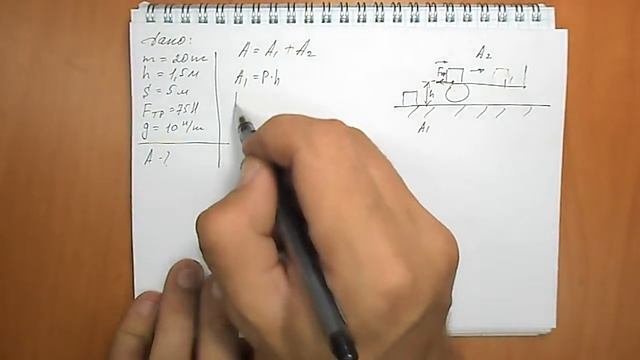 Дано:
m = 20 кг
h = 1,5 м
S = 5 м
Fтр = 75 Н
g = 10 н/m
A - ?
A = A₁ + A₂
A₁ = P · h
A₂
h
A₁